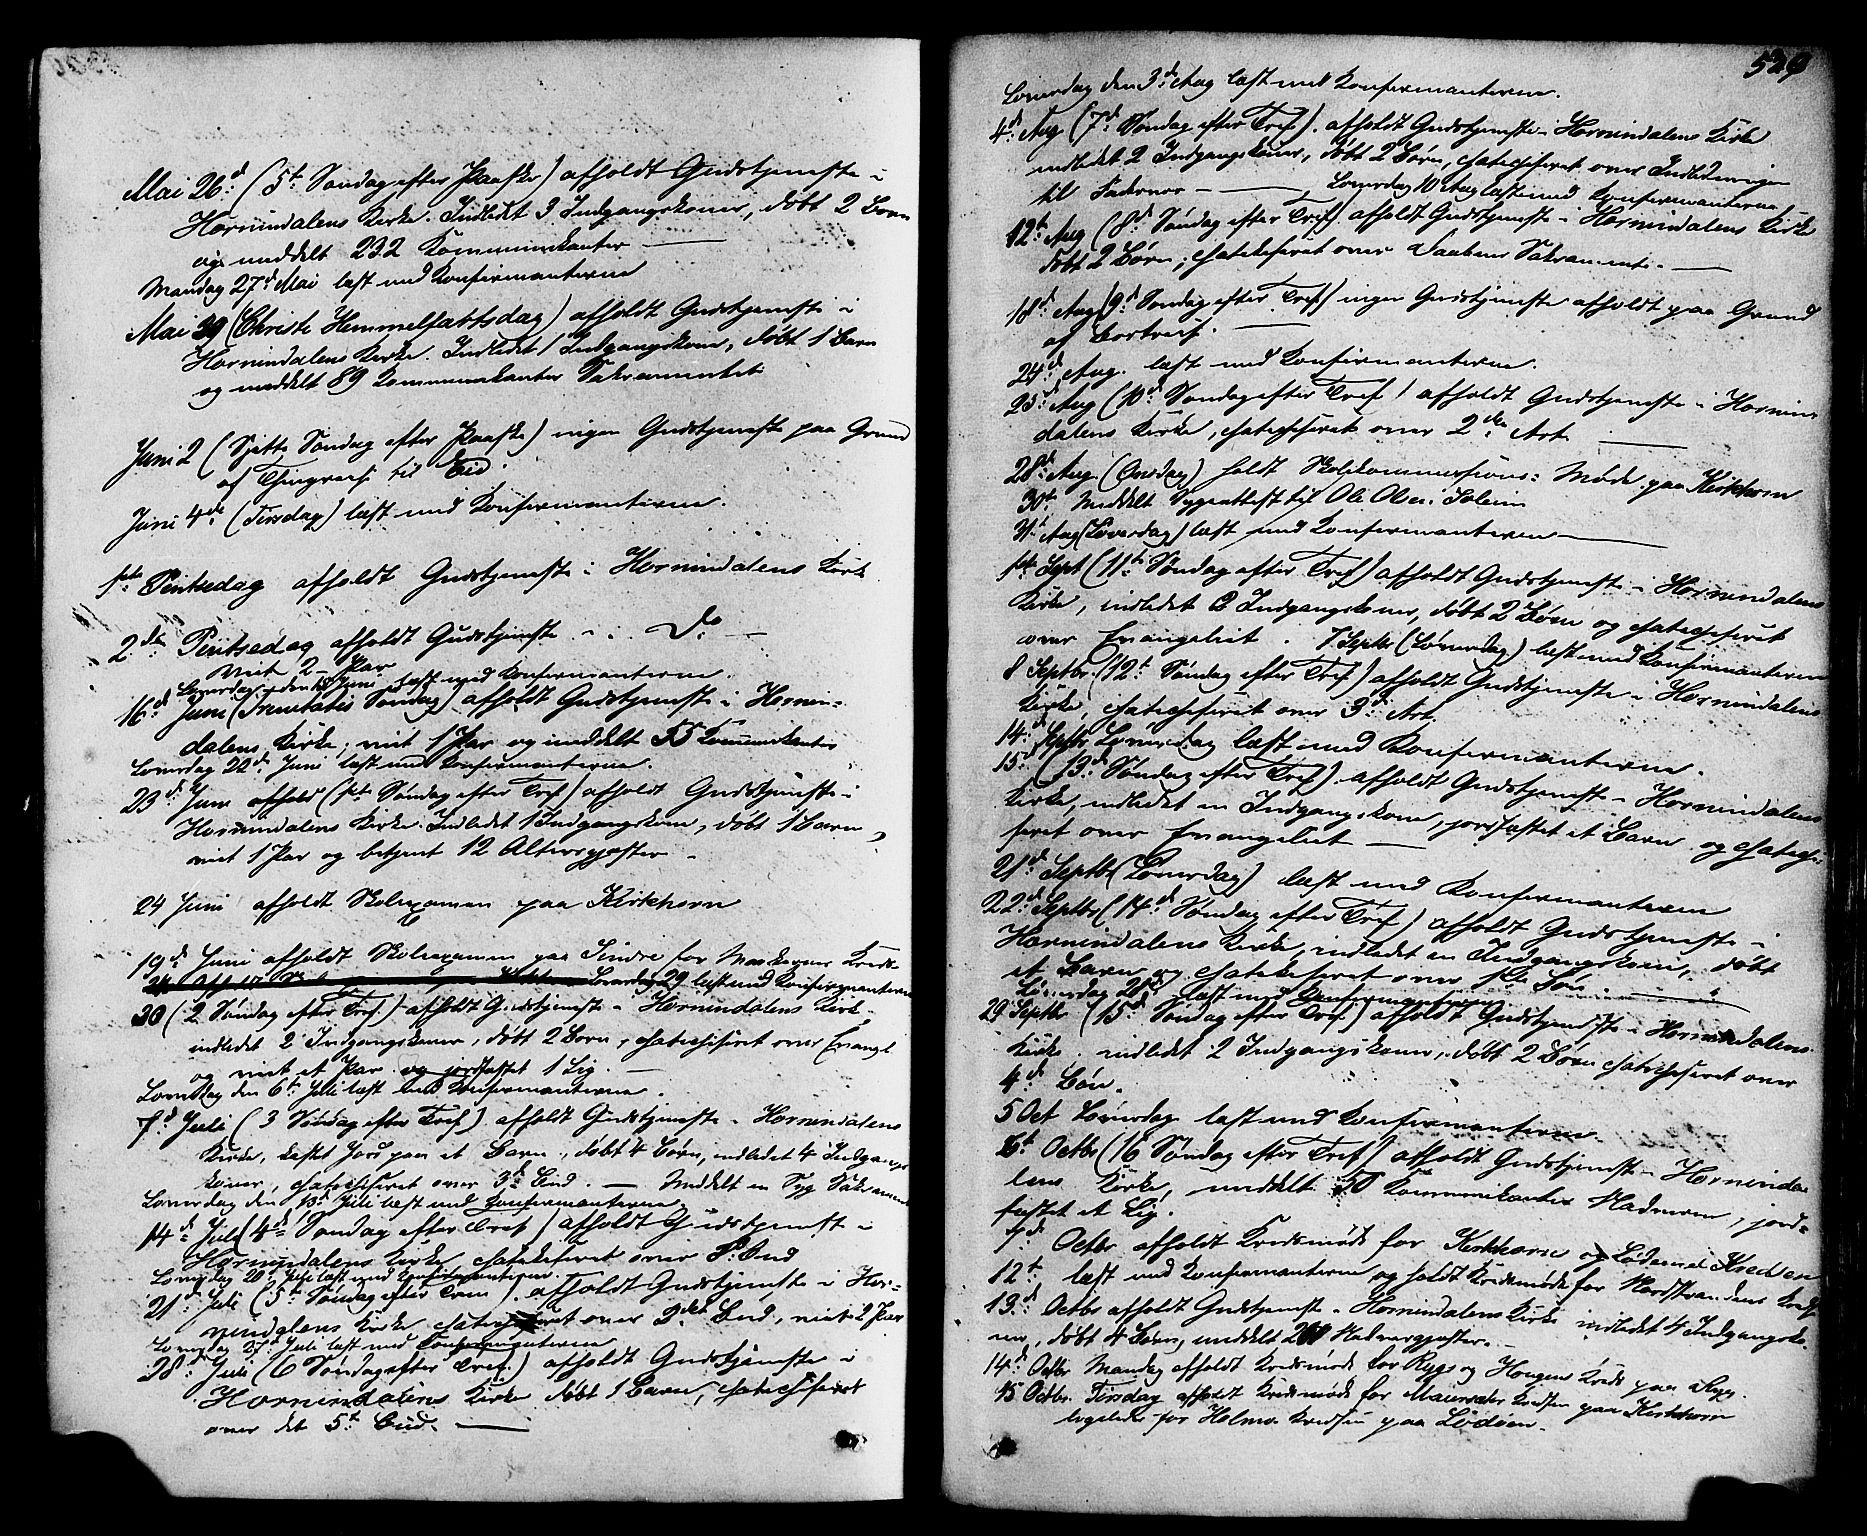 Mai 26d: (5t Søndag efter Paaske) afholdt Gudstjeneste i
Hornindalens Kirke. Indledt 3 Indgangskoner, døbt 2 Børn
og meddelt 232 Kommunikanter —
Mandag 27d Mai læst med Konfirmanterne
Mai 30 (Christi Hemmelfartsdag) afholdt Gudstjeneste i
Hornindalens Kirke. Indledet 1 Indgangskone, døbt 1 Barn
og meddelt 89 Kommunikanter Sakramentet
Juni 2 (Sjette Søndag efter Paaske) ingen Gudstjeneste paa Grund
af Thingreise til Eid.
Juni 4de (Tirsdag) læst med Konfirmanterne.
1ste Pintsedag afholdt Gudstjeneste i Hornindalens Kirke
2den Pintsedag afholdt Gudstjeneste i Do —
viet 2 Par
Løverdag den 15 Juni læst med Konfirmanterne.
16d Juni (Trinitatis Søndag) afholdt Gudstjeneste i Hornin-
dalens Kirke, viet 1 Par og meddelt 55 Kommunikanter
Løverdag 22d: Juni læst med Konfirmanterne.
23d: Juni (1st Søndag efter Tref) afholdt Gudstjeneste i
Hornindalens Kirke. Indledet 1 Indgangskone, døbt 1 Barn,
viet 1 Par og betjent 12 Altergjester —
24 Juni afholdt Skoleexamen paa Kirkhorn
19d: Juni afholdt Skoleexamen paa Sindre for Kreds
Løverdag 29 læst med Konfirmanterne
30 (2 Søndag efter Tref.) afholdt Gudstjeneste i Hornindalens Kirk.
indledet 2 Indgangskoner, døbt 2 Børn, chatechiseret over Evangl
og viet et Par og jordfæstet 1 Lig. —
Løverdag den 6t Juli læst med Konfirmanterne.
7d Juli (3 Søndag efter Tref) afholdt Gudstjeneste i Hornindalens
Kirke, kastet Jord paa et Barn, døbt 4 Børn, indledet 4 Indgangs
koner, chatechiseret over 3d Bud. — Meddelt en Syg Sakrament
Løverdag den 13d Juli læst med Konfirmanterne
14d Juli (4d Søndag efter Tref) afholdt Gudstjeneste i
Hornindalens Kirke chatekiseret over Bud
Løverdag 20 Juli læst med Konfirmanterne.
21d Juli (5t Søndag efter Tref) afholdt Gudstjeneste i Hor-
nindalens Kirke over Bud, viet 2 Par
Løverdag 27d: Juli læst med Konfirmanterne
28d: Juli (6 Søndag efter Tref.) afholdt Gudstjeneste i
Hornindalens Kirke døbt 1 Barn, chatechiseret
over det 5t Bud. —
529
Løverdag den 3d: Aug læst med Konfirmanterne.
4d: Aug (7d: Søndag efter Tref). afholdt Gudstjeneste i Hornindalens Kirke
indledet 2 Indgangskoner, døbt 2 Børn, chatechiseret over Indledningen
til Fadervor — Løverdag 10 Aug læst med Konfirmanterne
Aug (8d: Søndag efter Tref. afholdt Gudstjeneste i Hornindalens Kirke
døbt 2 Børn, chatekiseret over Daabens Sakramente. —
18d: Aug (9d Søndag efter Tref) ingen Gudstjeneste afholdt paa Grund
af Bortreise. —
24d: Aug. læst med Konfirmanterne.
25d: Aug (10d: Søndag efter Tref) afholdt Gudstjeneste i Hornin
dalens Kirke, chatechiseret over 2den Art. —
28d: Aug (Onsdag) holdt Skolekommissions: Møde paa Kirkhorn
30t: Meddelt Sygeattest til Ole Olsen Solem
31t Aug (Løverdag) læst med Konfirmanterne —
1ste Sept (11t: Søndag efter Tref) afholdt Gudstjeneste i Hornindalens
Kirke, indledet 2 Indgangskoner, døbt 2 Børn og chatechiseret
over Evangeliet. 7 Septbr (Løverdag) læst med Konfirmanterne
8 Septbr. (12t Søndag efter Tref) afholdt Gudstjeneste i Hornindalens
Kirke, chatechiseret over 3d Art.
14d: Septbr Løverdag læst med Konfirmanterne.
15d: (13d: Søndag efter Tref). afholdt Gudstjeneste i Hornindalens
Kirke, indledet en Indgangskone, jordfæstet et Barn og chatechi-
seret over Evangeliet —
21d: Septbr (Løverdag) læst med Konfirmanterne
22d: Septbr (14d: Søndag efter Tref) afholdt Gudstjeneste i
Hornindalens Kirke, indledet en Indgangskone, døbt
et Barn og chatekiseret over 1ste Bøn. —
Løverdag 28d læst med Konfirmanterne
29 Septbr (15d Søndag efter Tref) afholdt Gudstjeneste i Hornindalens
Kirke. indledet 2 Indgangskoner, døbt 2 Børn chatechiseret over
4d: Bøn.
5 Oct Løverdag læst med Konfirmanterne.
6t: Octbr (16 Søndag efter Tref) afholdt Gudstjeneste i Horninda
lens Kirke, meddelt 50 Kommunikanter Nadveren, jord-
fæstet et Lig.
7d: Octbr afholdt Kredsmøde for Kirkhorn og Kredsen
12t: læst med Konfirmanterne og holdt Kredsmøde for Nordstrandens Kreds
13d: Octbr afholdt Gudstjeneste i Hornindalens Kirke indledet 4 Indgangsko-
ner, døbt 4 Børn, meddelt Nadvergjester. —
14d: Octbr Mandag afholdt Kredsmøde for Rygs og Hougens Kreds paa Ryg.
15 Octbr. Tirsdag afholdt Kredsmøde for Kredsen paa Kirkhorn
ligeledes for Holmø Kredsen paa Lødøen.